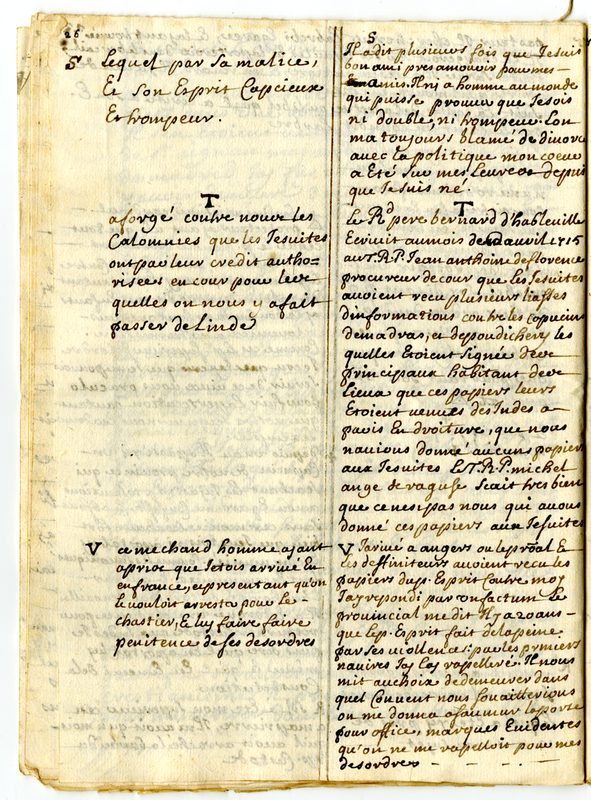 26
S lequel par sa malice,
Et son Esprit Capcieux
Et trompeur.
T
a forgé contre nous les
Calomnies que les Jesuites
ont par leur credit autho=
risées en cour pour les
quelles on nous y a fait
passer de Linde
V ce mechand homme ajant
apris que Jetois arrivé En
en france, en present ant qu'on
le vouloit arrester pour le
chastier, E luy faire faire
penitence de ses desordres
S
Il a dit plusieurs fois que Je suis
bon ami pres a mouvoir pour mes
amis. Il nj a homme au monde
qui puisse prouver que Je sois
ni double, ni trompeur. Lon
ma toujours blamé de divorce
avec la politique mon coeur
a Eté sur mes Leures depuis
que Je suis né.
T
Le Rd pere bernard d'habbeuille
Ecriuit au mois de avril 1715
au T.R.P. Jean anthoine de florence
procureur de cour que les Jesuites
avoient recu plusieurs liasses
dinformations contre les capucins
de madras, et de pondichery les
quelles Etoient signée des
principaux habitant des
Lieux que ces papiers leurs
Etoient venus des Indes a
paris En droiture, que nous
navions donné aucuns papiers
aux Jesuites Le T.R.P. michel
ange de raguse scait tres bien
que ce nest pas nous qui avons
donné ces papiers aux Jesuites
V Jarivé a angers ou le proal E
les deffiniteurs avoient recu les
papiers du p. Esprit Contre moy
J'ay repondi par un factum. Le
provincial me dit Il y a 20 ans
que le p. Esprit fait de la peine
par ses violences: par les premiers
navires Je le rapelleré. Il nous
mit au choix de demeurer dans
quel Convent nous souaitterions
on me donna a saumur la porte
pour office, marques Evidentes
qu'on ne me rapelloit pour mes
desordres - - - -